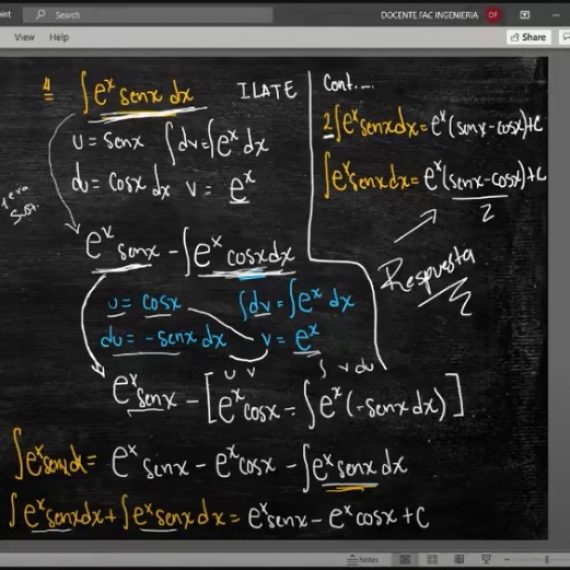 Search
DOCENTE FAC INGENIERIA
DF
View Help
Share
4 ∫e^x senx dx
ILATE
u = senx ∫dv = ∫e^x dx
du = cosx dx v = e^x
e^x senx - ∫e^x cosx dx
u = cosx ∫dv = ∫e^x dx
du = -senx dx v = e^x
u v ∫ v du
e^x senx - [e^x cosx - ∫e^x (-senx dx)]
∫e^x senx dx = e^x senx - e^x cosx - ∫e^x senx dx
∫e^x senx dx + ∫e^x senx dx = e^x senx - e^x cosx + C
Cont....
2∫e^x senx dx = e^x (senx - cosx) + C
∫e^x senx dx = e^x (senx - cosx) + C
2
Respuesta
Notes